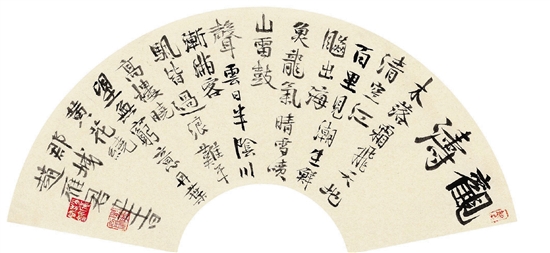 觀濤
木落霜飛天地
清空江
百里見潮生鮮
飈出海
魚龍氣晴雪噴
山雷鼓
聲雲日半陰川
漸滿客
帆皆過浪難平
高樓曉
望無窮意丹葉
黃花繞
郡城趙雁君